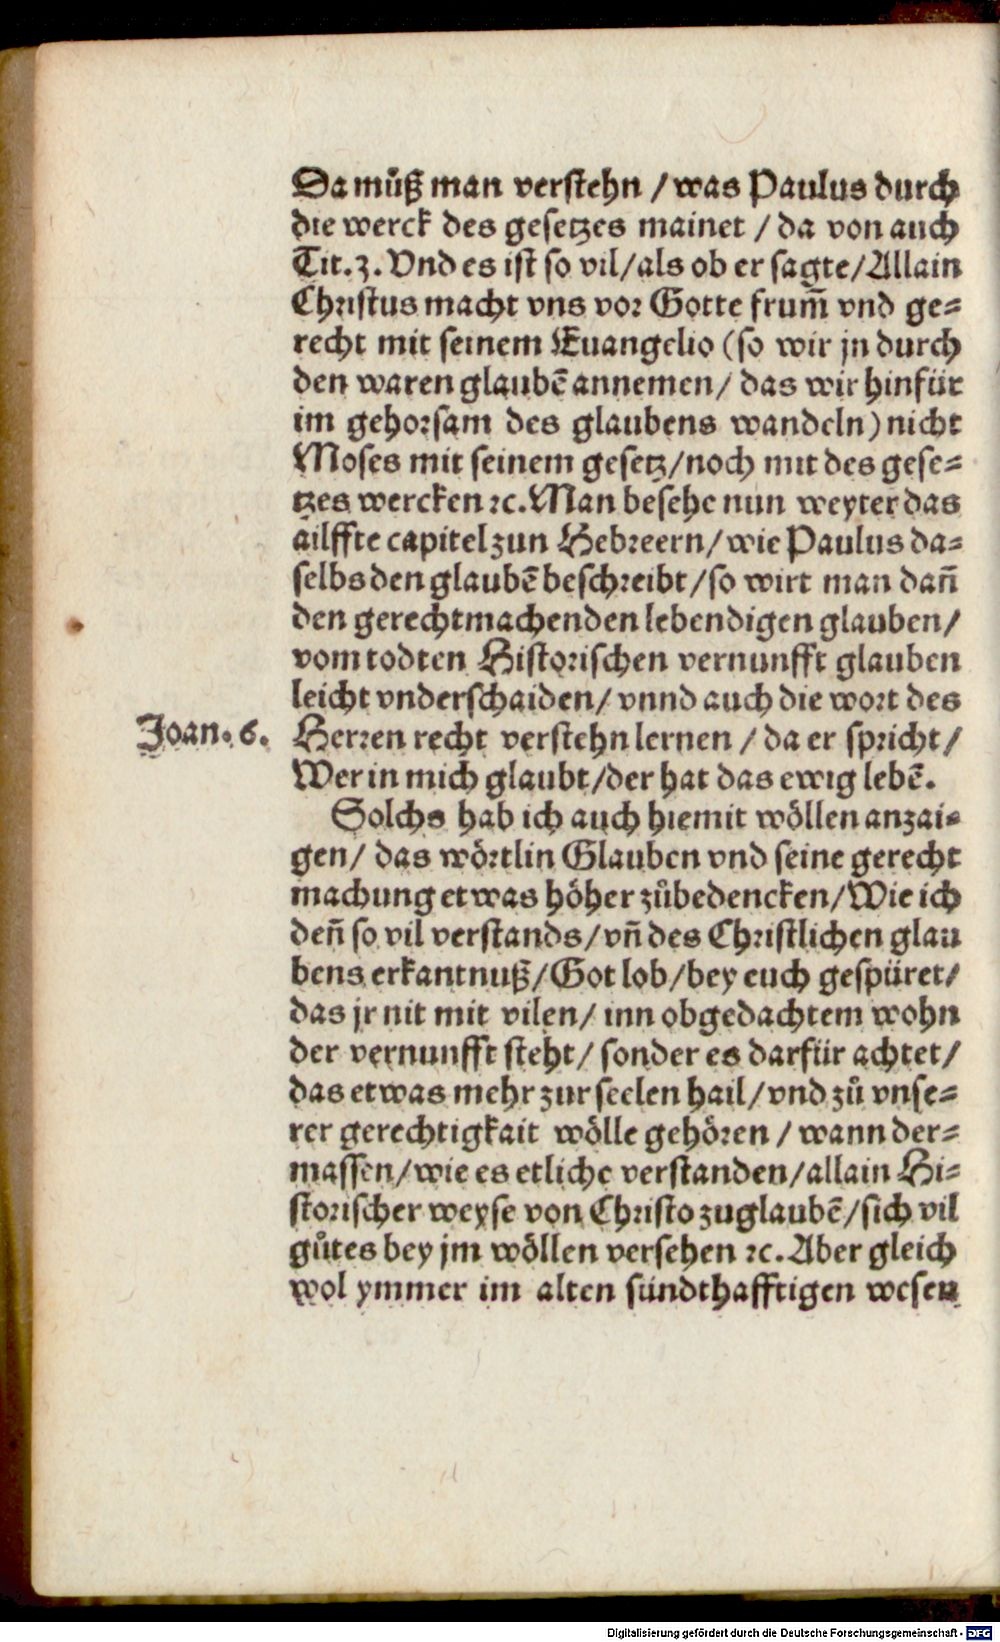 Da můß man verstehn / was Paulus durch
die werck des gesetzes mainet / da von auch
Tit. 3. Vnd es ist so vil / als ob er sagte / Allain
Christus macht vns vor Gotte frum̃ vnd ge=
recht mit seinem Euangelio (so wir jn durch
den waren glaubẽ annemen / das wir hinfür
im gehorsam des glaubens wandeln) nicht
Moses mit seinem gesetz / noch mit des gese=
tzes wercken ꝛc. Man besehe nun weyter das
ailffte capitel zun Hebreern / wie Paulus da=
selbs den glaubẽ beschreibt / so wirt man dañ
den gerechtmachenden lebendigen glauben /
vom todten Historischen vernunfft glauben
leicht vnderschaiden / vnnd auch die wort des
Joan. 6.
Herren recht verstehn lernen / da er spricht /
Wer in mich glaubt / der hat das ewig lebẽ.
Solchs hab ich auch hiemit wöllen anzai=
gen / das wörtlin Glauben vnd seine gerecht
machung etwas höher zůbedencken / Wie ich
deñ so vil verstands / vñ des Christlichen glau
bens erkantnuß / Got lob / bey euch gespüret /
das jr nit mit vilen / inn obgedachtem wohn
der vernunfft steht / sonder es darfür achtet /
das etwas mehr zur seelen hail / vnd zů vnse=
rer gerechtigkait wölle gehören / wann der=
massen / wie es etliche verstanden / allain Hi=
storischer weyse von Christo zuglaubẽ / sich vil
gůtes bey jm wöllen versehen ꝛc. Aber gleich
wol ymmer im alten sündthafftigen wesen
Digitalisierung gefördert durch die Deutsche Forschungsgemeinschaft - DFG